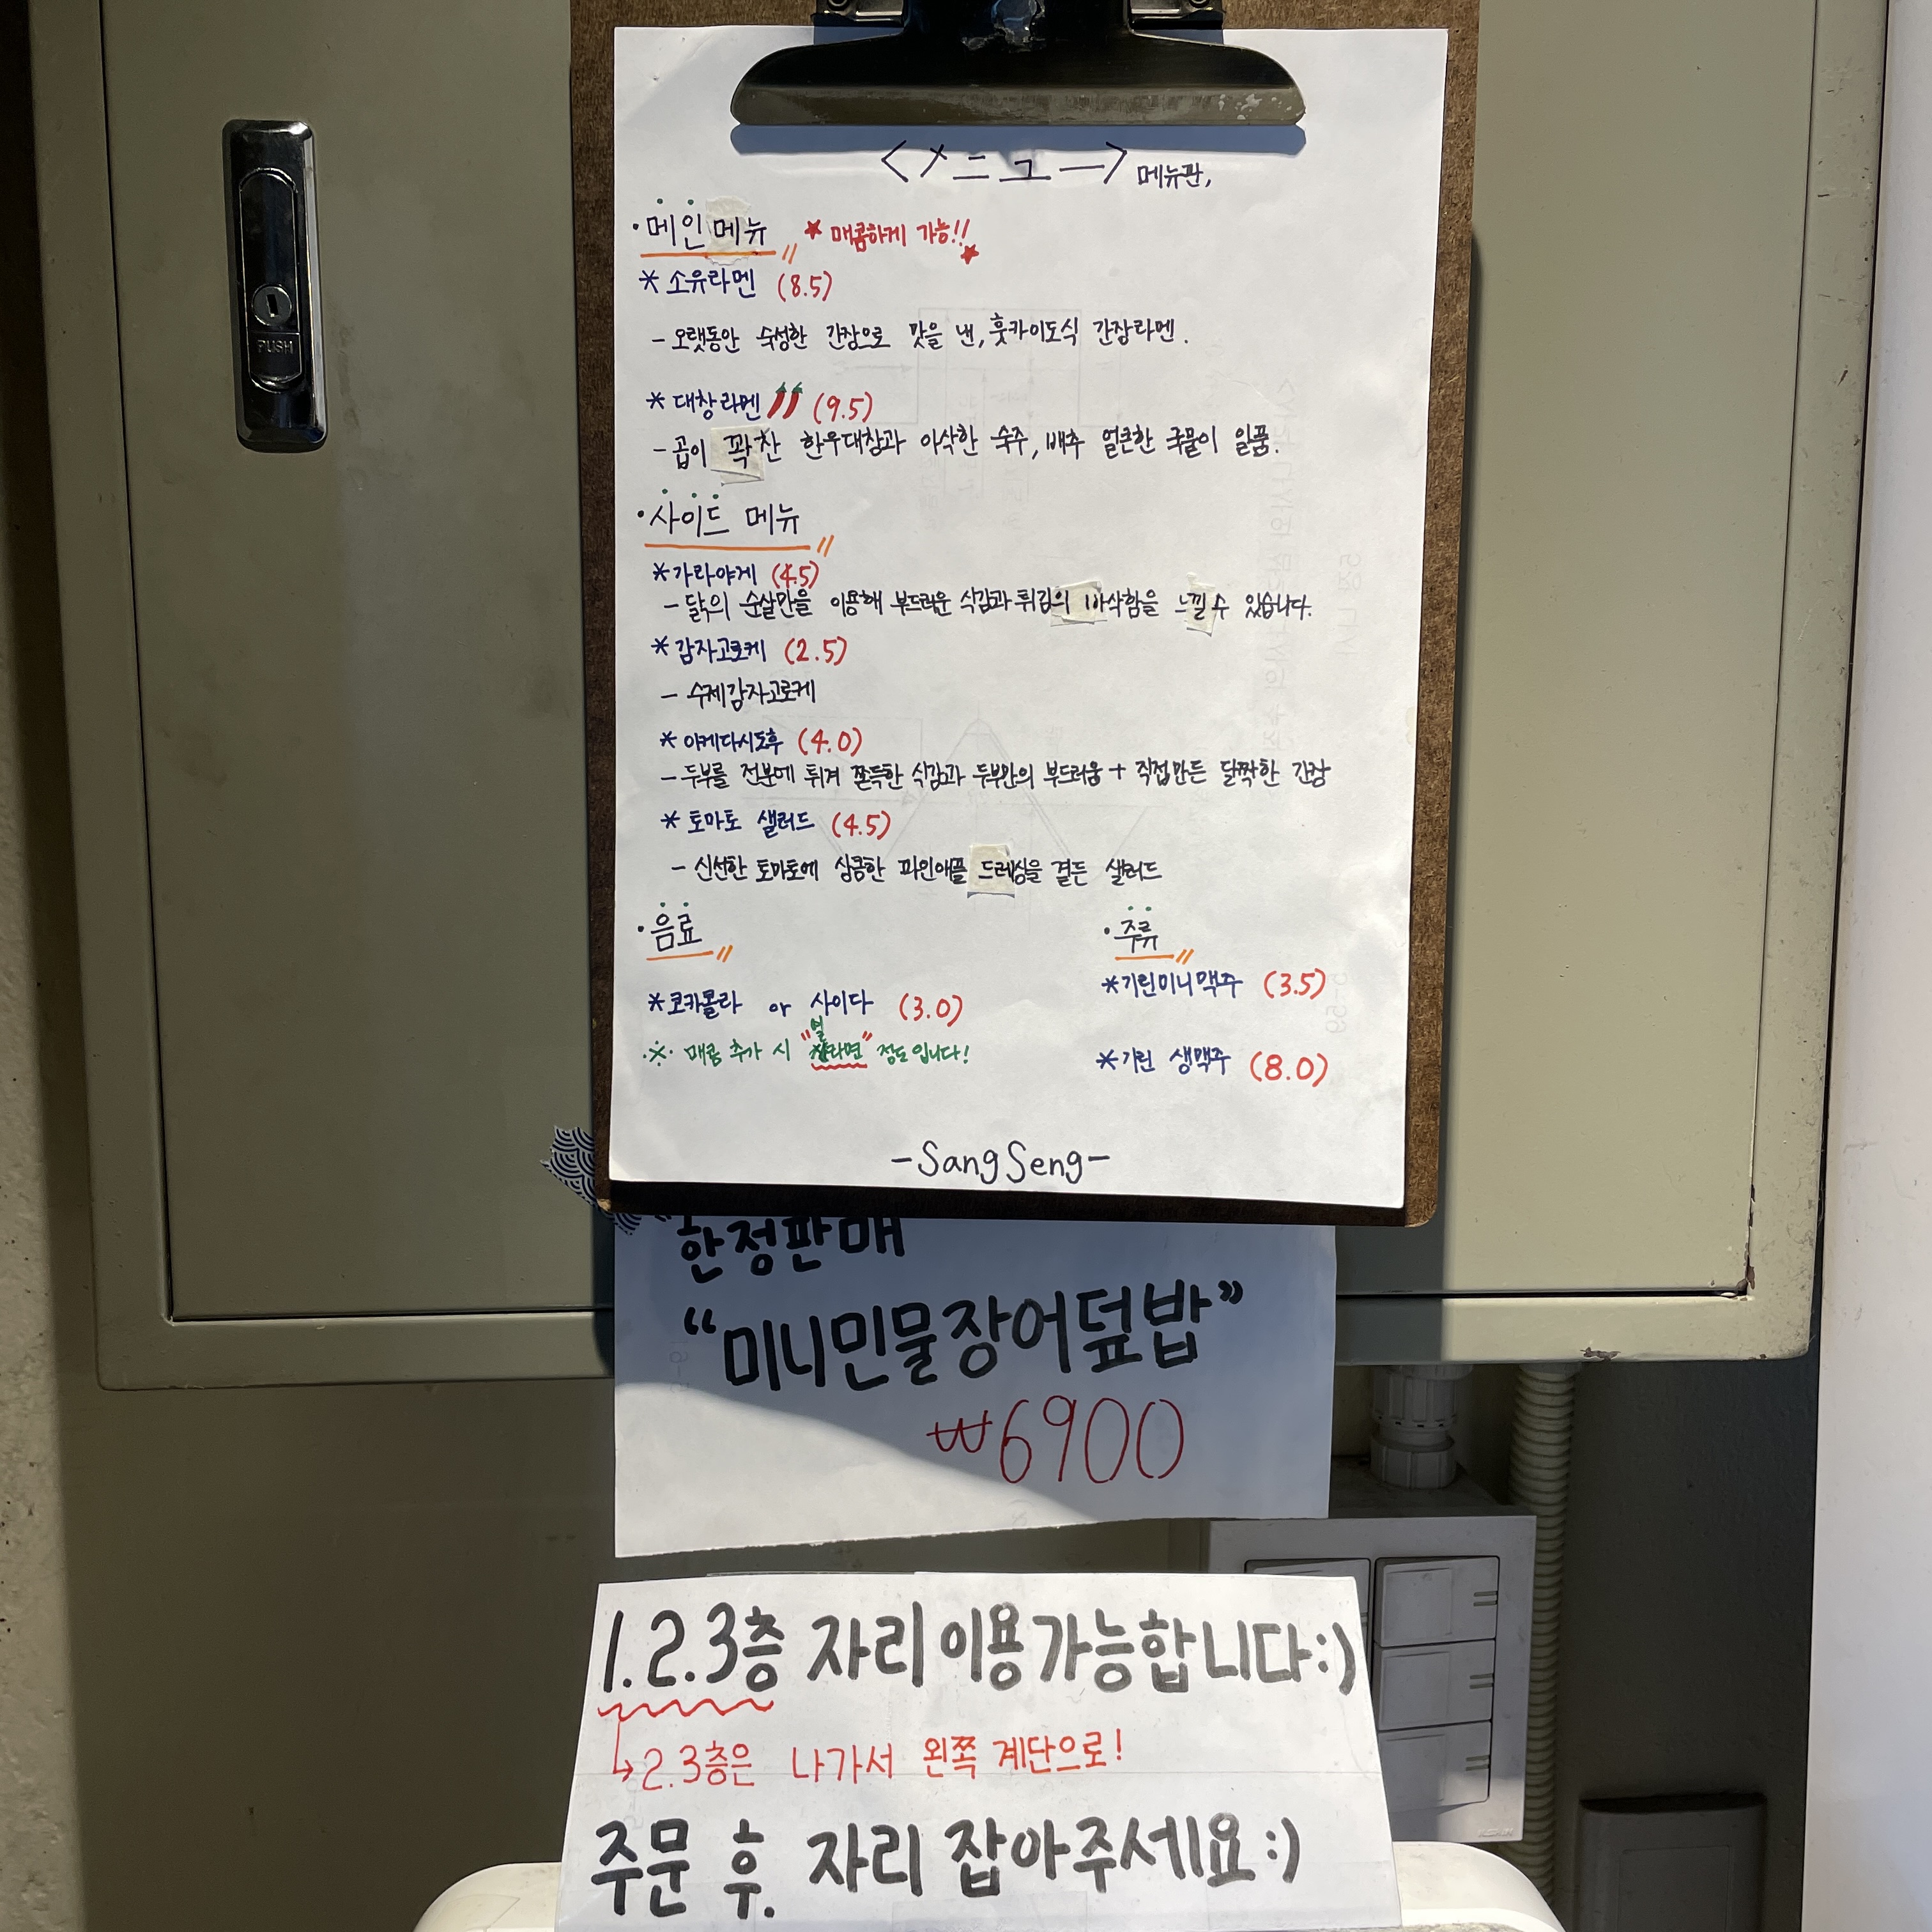 <メニュー> 메뉴판,
·메인메뉴 ★ 매콤하게 가능!! ★
* 소유라멘 (8.5)
- 오랫동안 숙성한 간장으로 맛을 낸, 훗카이도식 간장라멘.
* 대창라멘 (9.5)
- 곱이 꽉찬 한우대창과 아삭한 숙주, 배추 얼큰한 국물이 일품.
·사이드 메뉴
* 가라아게 (4.5)
- 닭의 순살만을 이용해 부드러운 식감과 튀김의 바삭함을 느낄수 있습니다.
* 감자고로케 (2.5)
- 수제감자고로케
* 아게다시도후 (4.0)
- 두부를 전분에 튀겨 쫀득한 식감과 두부안의 부드러움 + 직접만든 달짝한 간장
* 토마토 샐러드 (4.5)
- 신선한 토마토에 상큼한 파인애플 드레싱을 곁든 샐러드
·음료
* 코카콜라 or 사이다 (3.0)
※ 매콤 추가 시 "열라면" 정도입니다!
·주류
* 기린미니맥주 (3.5)
* 기린 생맥주 (8.0)
-SangSeng-
"한정판매
"미니민물장어덮밥"
₩6900
1.2.3층 자리 이용가능합니다:)
↳2.3층은 나가서 왼쪽 계단으로!
주문 후. 자리 잡아주세요:)
PUSH